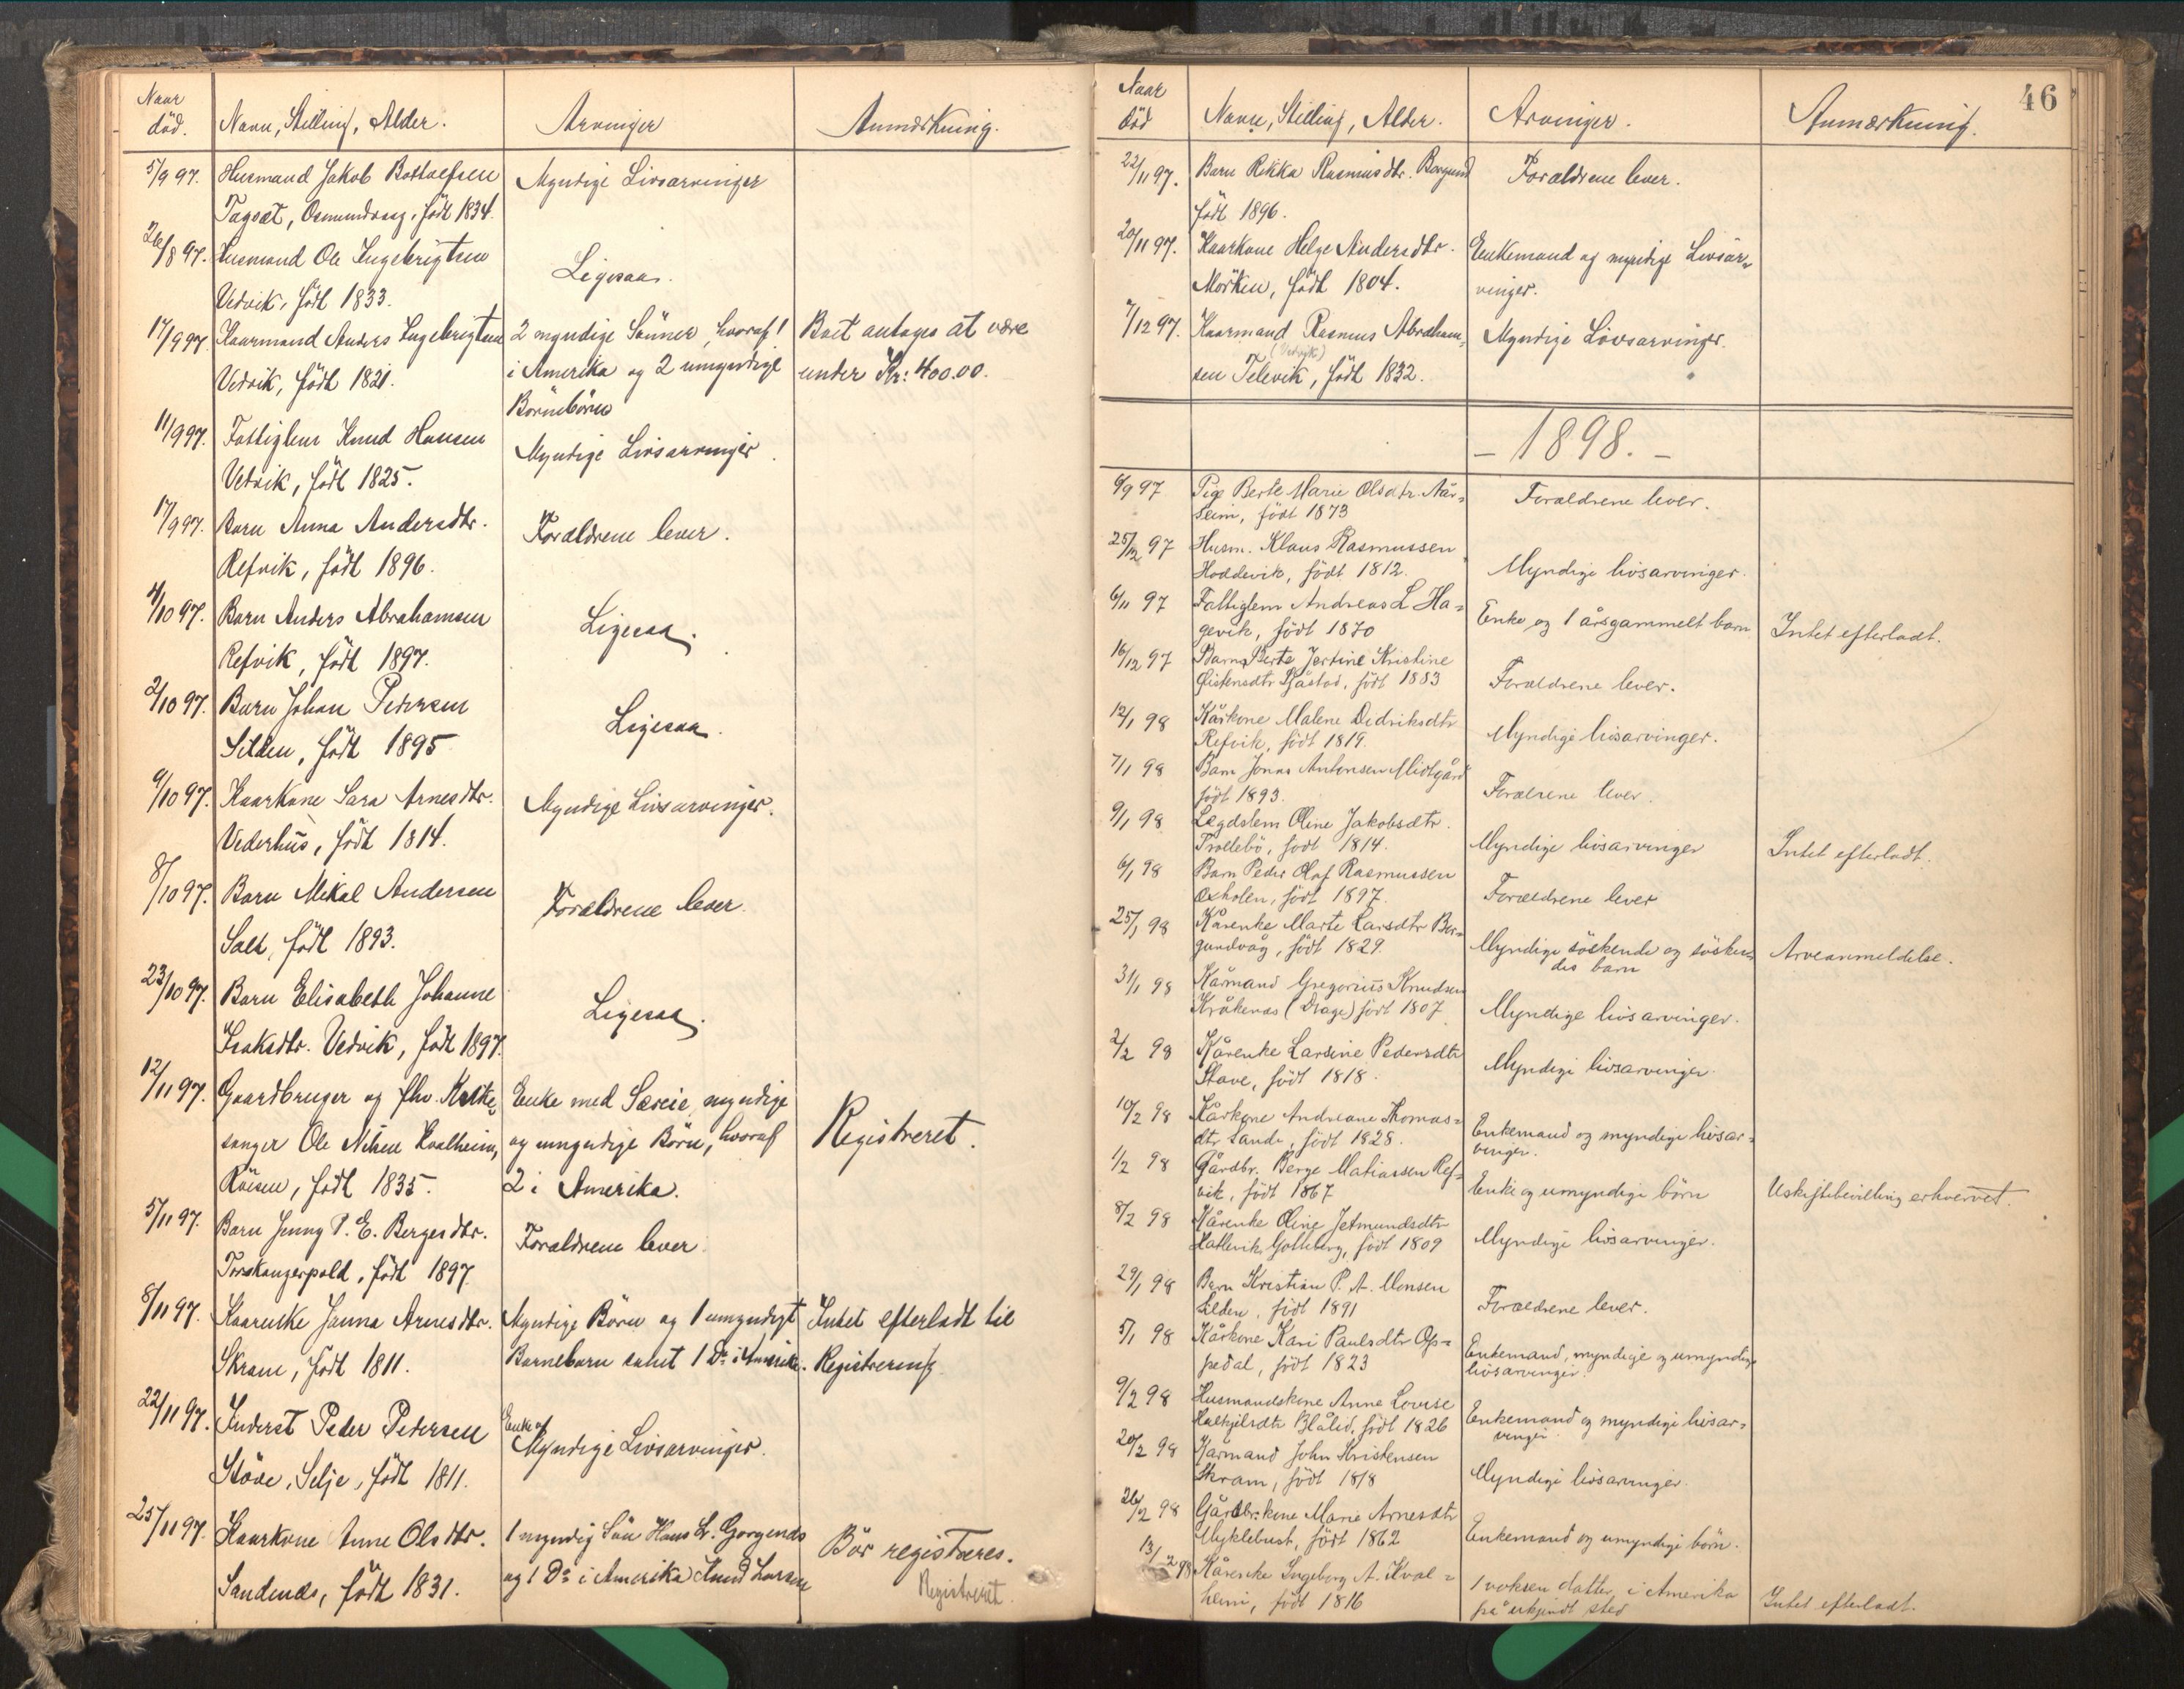 Naar død. Navn, Stilling, Alder. Arvinger Anmærkning.
5/9 97. Husmand Jakob Bottolfsen Myndige Livsarvinger
Tagset, Osmundvaag, født 1834.
26/8 97. Husmand Ole Ingebrigtsen Ligesaa.
Vedvik, født 1833.
17/9 97. Kaarmand Anders Ingebrigtsen 2 myndige Sønner, hvoraf 1 Boet antages at være
Vedvik, født 1821. i Amerika og 2 umyndige under Kr: 400.00.
Børnebørn
11/9 97. Fattiglem Knud Hansen Myndige Livsarvinger.
Vedvik, født 1825.
17/9 97. Barn Anna Andersdtr. Forældrene lever.
Refvik, født 1896.
4/10 97. Barn Anders Abrahamsen Ligesaa.
Refvik, født 1897.
2/10 97. Barn Johan Petersen Ligesaa.
Silden, født 1895
9/10 97. Kaarkone Sara Arnesdtr. Myndige Livsarvinger.
Vederhus, født 1814.
8/10 97. Barn Mikal Andersen Forældrene lever.
Salt, født 1893.
23/10 97. Barn Elisabeth Johanne Ligesaa.
Isaksdtr. Vedvik, født 1897.
12/11 97. Gaardbruger og fhv. Kirke- Enke med Særeie, myndige Registreret.
sanger Ole Nilsen Kvalheim, og umyndige Børn, hvoraf
Røisen, født 1835. 2 i Amerika.
5/11 97. Barn Jenny P. E. Bergesdtr. Forældrene lever.
Torskangerpold, født 1897.
8/11 97. Kaarenke Janna Arnesdtr. Myndige Børn og 1 umyndigt Intet efterladt til
Skram, født 1811. Barnebarn samt 1 Do i Amerika. Registrering.
22/11 97. Inderst Peder Petersen Enke og Myndige Livsarvinger.
Støve, Selje, født 1811.
25/11 97. Kaarkone Anne Olsdtr. 1 myndig Søn Hans L. Gorgends Bør registreres.
Sandenes, født 1831. og 1 Do i Amerika Knud Larsen Registreret.
46
Naar død Navn, Stilling, Alder. Arvinger. Anmærkning.
22/11 97. Barn Rikka Rasmusdtr. Borgund Forældrene lever.
født 1896.
20/11 97. Kaarkone Helge Andersdtr. Enkemand og myndige Livsar-
Mörken, født 1804. vinger.
7/12 97. Kaarmand Rasmus Abraham- Myndige Livsarvinger.
(Vedvik)
sen Televik, født 1832.
- 1898. -
6/9 97 Pige Berte Marie Olsdtr. Aar- Forældrene lever.
seim, født 1873
25/12 97 Husm. Klaus Rasmussen Myndige livsarvinger.
Hoddevik, født 1812.
6/11 97 Fattiglem Andreas L Ha- Enke og 1 årsgammelt barn Intet efterladt.
gevik, født 1870
16/12 97 Barn Berte Jertine Kristine Forældrene lever.
Eistensdtr Råstad, født 1883
12/1 98 Kårkone Malene Didriksdtr Myndige livsarvinger.
Refvik, født 1819.
7/1 98 Barn Jonas Antonsen Midtgård Forælrene lever.
født 1893.
9/1 98 Lægdslem Oline Jakobsdtr. Myndige livsarvinger Intet efterladt.
Trollebø, født 1814.
6/1 98 Barn Peder Olaf Rasmussen Forældrene lever
Oxholen, født 1897.
25/1 98 Kårenke Marte Larsdtr Bor- Myndige söskende og sösken- Arveanmeldelse.
gundvåg, født 1829. des barn
31/1 98 Kårmand Gregorius Knudsen Myndige livsarvinger.
Kråkenæs (Drage) født 1807
2/2 98 Kårenke Larsine Pedersdtr Myndige livsarvinger
Stave, født 1818.
10/2 98 Kårkone Andreane Thomas- Enkemand og myndige livsar-
dtr Sande, født 1828. vinger.
1/2 98 Gårdbr. Berge Matiassen Ref- Enke og umyndige börn Uskiftebevilling erhvervet.
vik, født 1867
8/2 98 Kårenke Oline Jetmundsdtr Myndige livsarvinger.
Hatlevik, Golteberg, født 1809
29/1 98 Barn Kristian P. A. Monsen Forældrene lever.
Silden, født 1891
5/1 98 Kårkone Kari Paulsdtr Op- Enkemand, myndige og umyndige
pedal, født 1823 livsarvinger.
9/2 98 Husmandskone Anne Lovise Enkemand og myndige livsar-
Salkjelsdtr Blålid, født 1826 vinger.
20/2 98 Kårmand John Kristensen Myndige livsarvinger.
Skram, født 1818
26/2 98 Gårdbr.kone Marie Arnesdtr Enkemand og umyndige börn.
Myklebust, født 1862
13/2 98 Kårenke Ingeborg A. Kval- 1 voksen datter i Amerika Intet efterladt.
heim, født 1816 på ukjendt sted